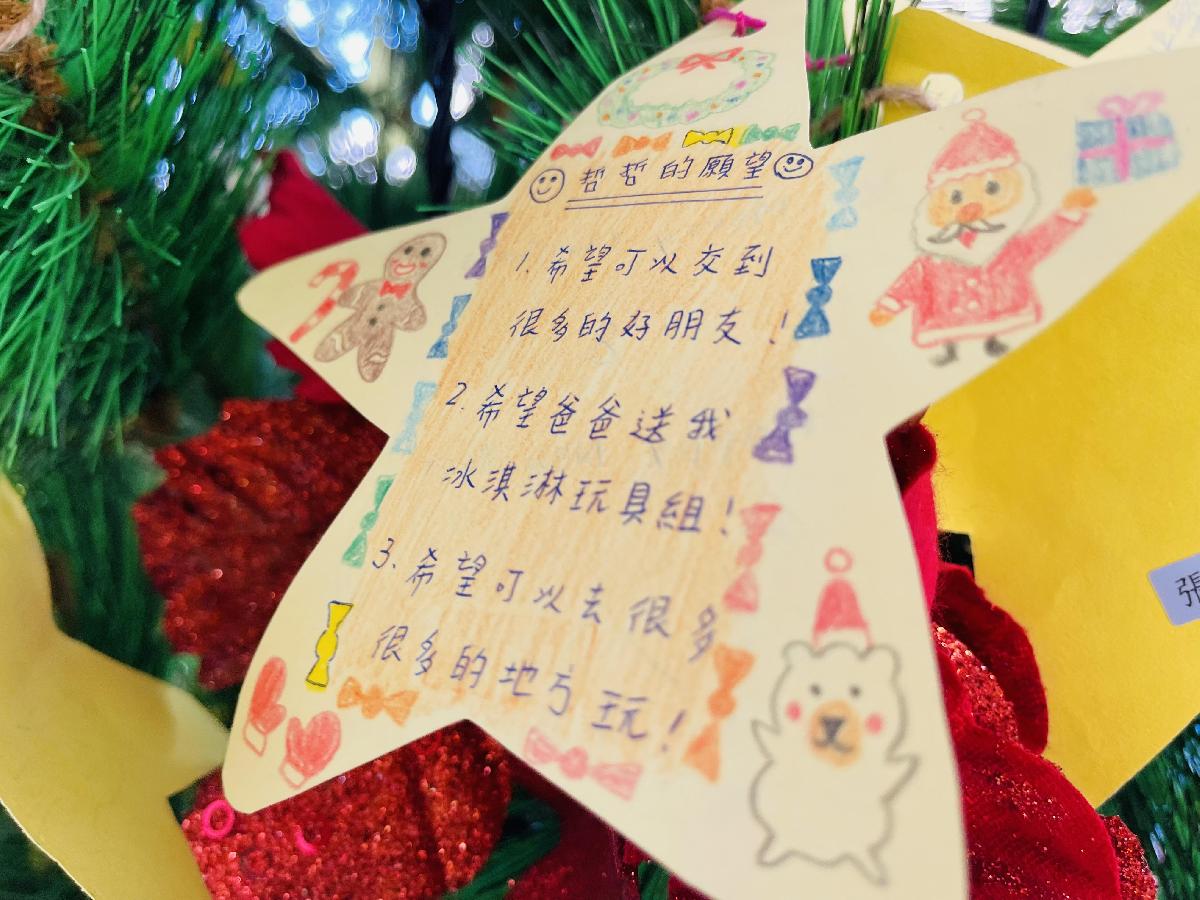 哲哲的願望
1. 希望可以交到
很多的好朋友!
2. 希望爸爸送我
冰淇淋玩具組!
3. 希望可以去很多
很多的地ㄎ玩!
張